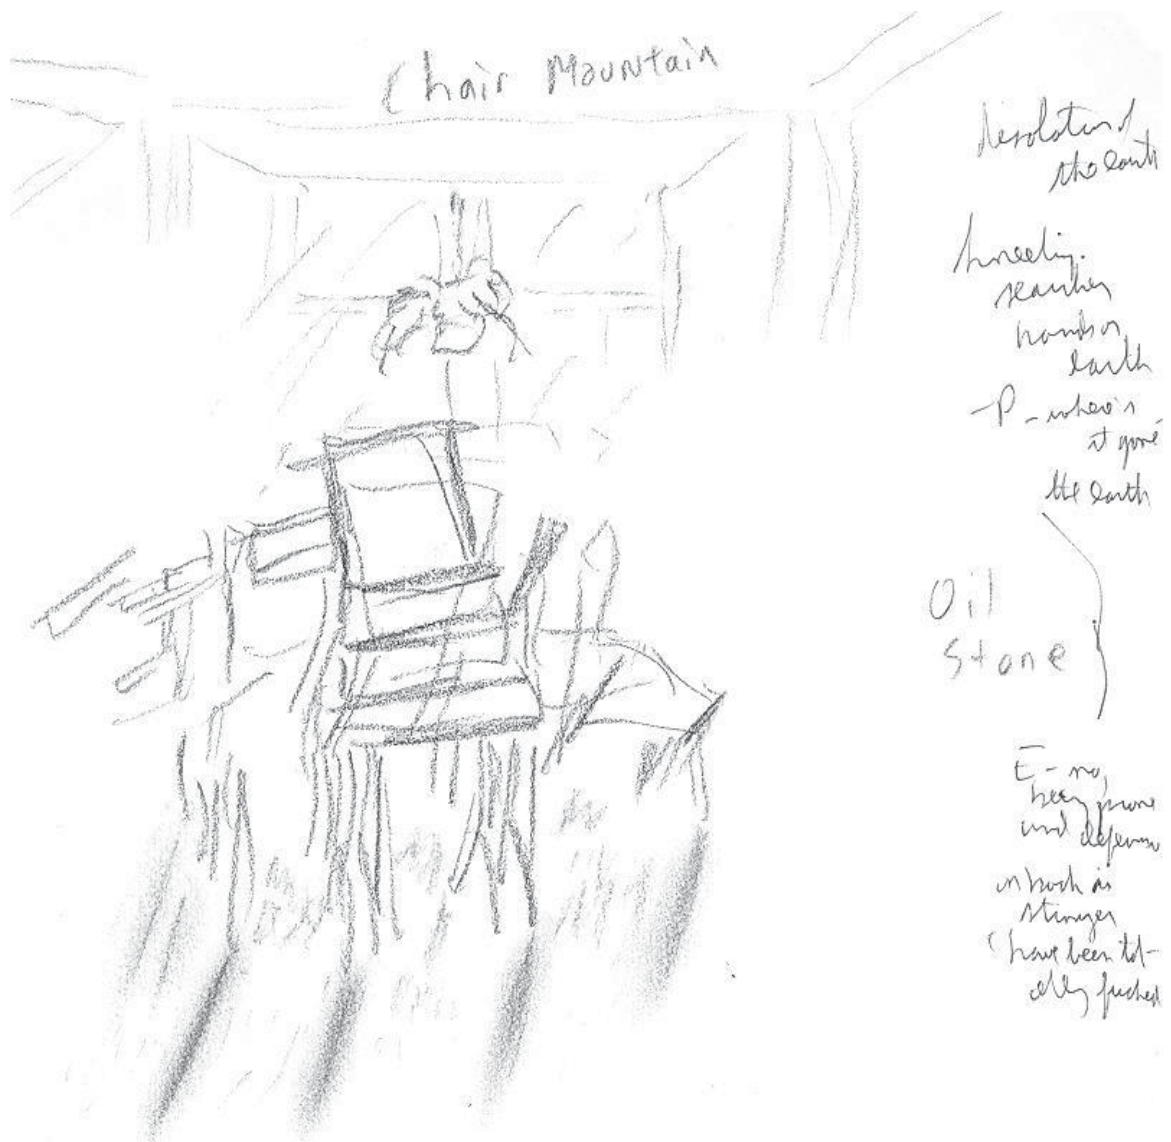 Chair Mountain
desolation of
the earth
kneeling.
searches
hands on
earth
-P- where's
it gone
the earth
Oil
Stone
E- no,
prone
and
in such as
have been tot-
ally fucked